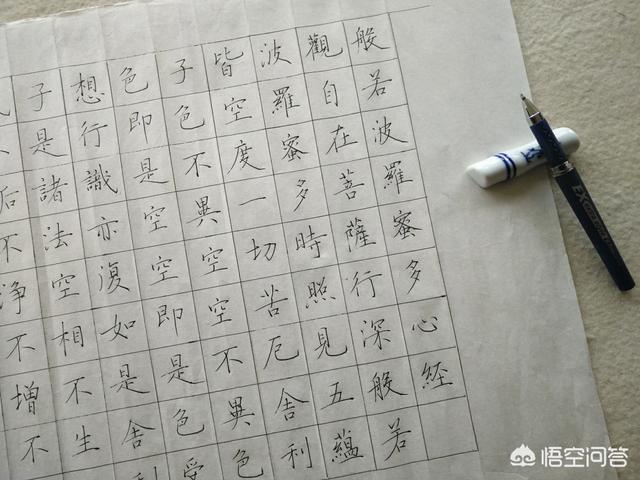 般若波羅蜜多心經
觀自在菩薩行深般若
波羅蜜多時照見五蘊
皆空度一切苦厄舍利
子色不異空空不異色
色即是空空即是色受
想行識亦復如是舍利
子是諸法空相不生
不淨不增不
悟空问答